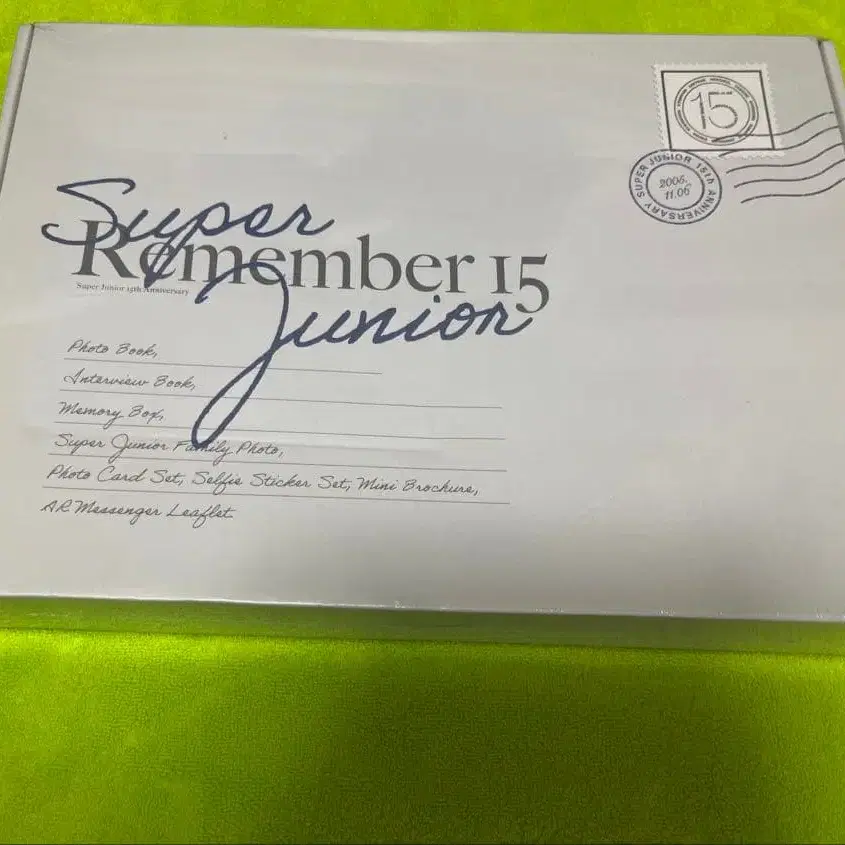 15
SUPER JUNIOR 15th ANNIVERSARY
2005.
11.06
Super
Remember 15
Super Junior 15th Anniversary
Junior
Photo Book,
Interview Book,
Memory Box,
Super Junior Family Photo,
Photo Card Set, Selfie Sticker Set, Mini Brochure,
AR Messenger Leaflet